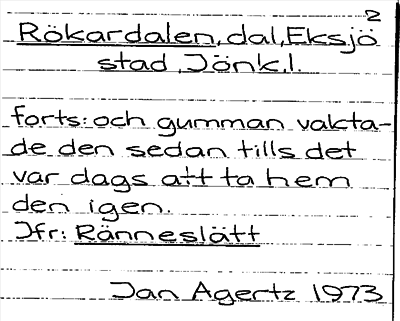 2
Rökardalen, dal, Eksjö
stad, Jönk.l.
forts: och gumman vakta-
de den sedan tills det
var dags att ta hem
den igen.
Jfr: Ränneslätt
Jan Agertz 1973